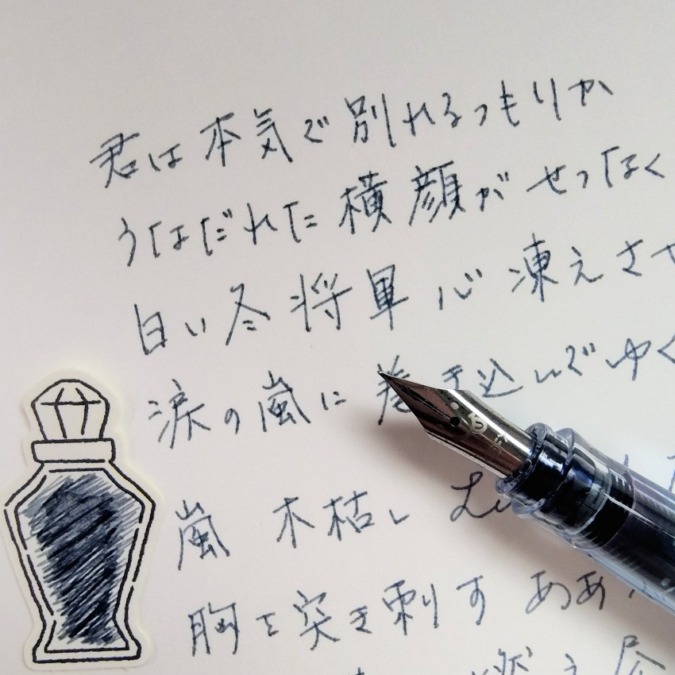 君は本気で別れるつもりか
うなだれた横顔がせつなく
白い冬将軍 心 凍えさせ
涙の嵐に巻き込んでゆく
嵐 木枯し
胸を突き刺す ああ
燃え尽